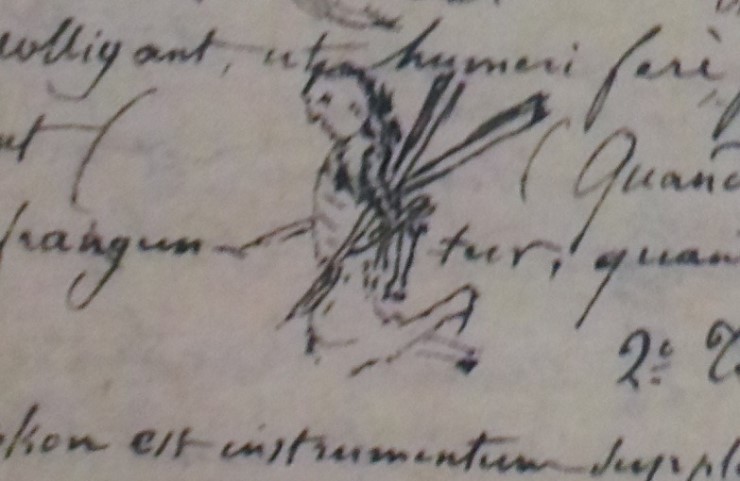 colligant, ut humeri ferè
(
( Quand
frangun tur, quan
2º
kon est instrumentum suppl